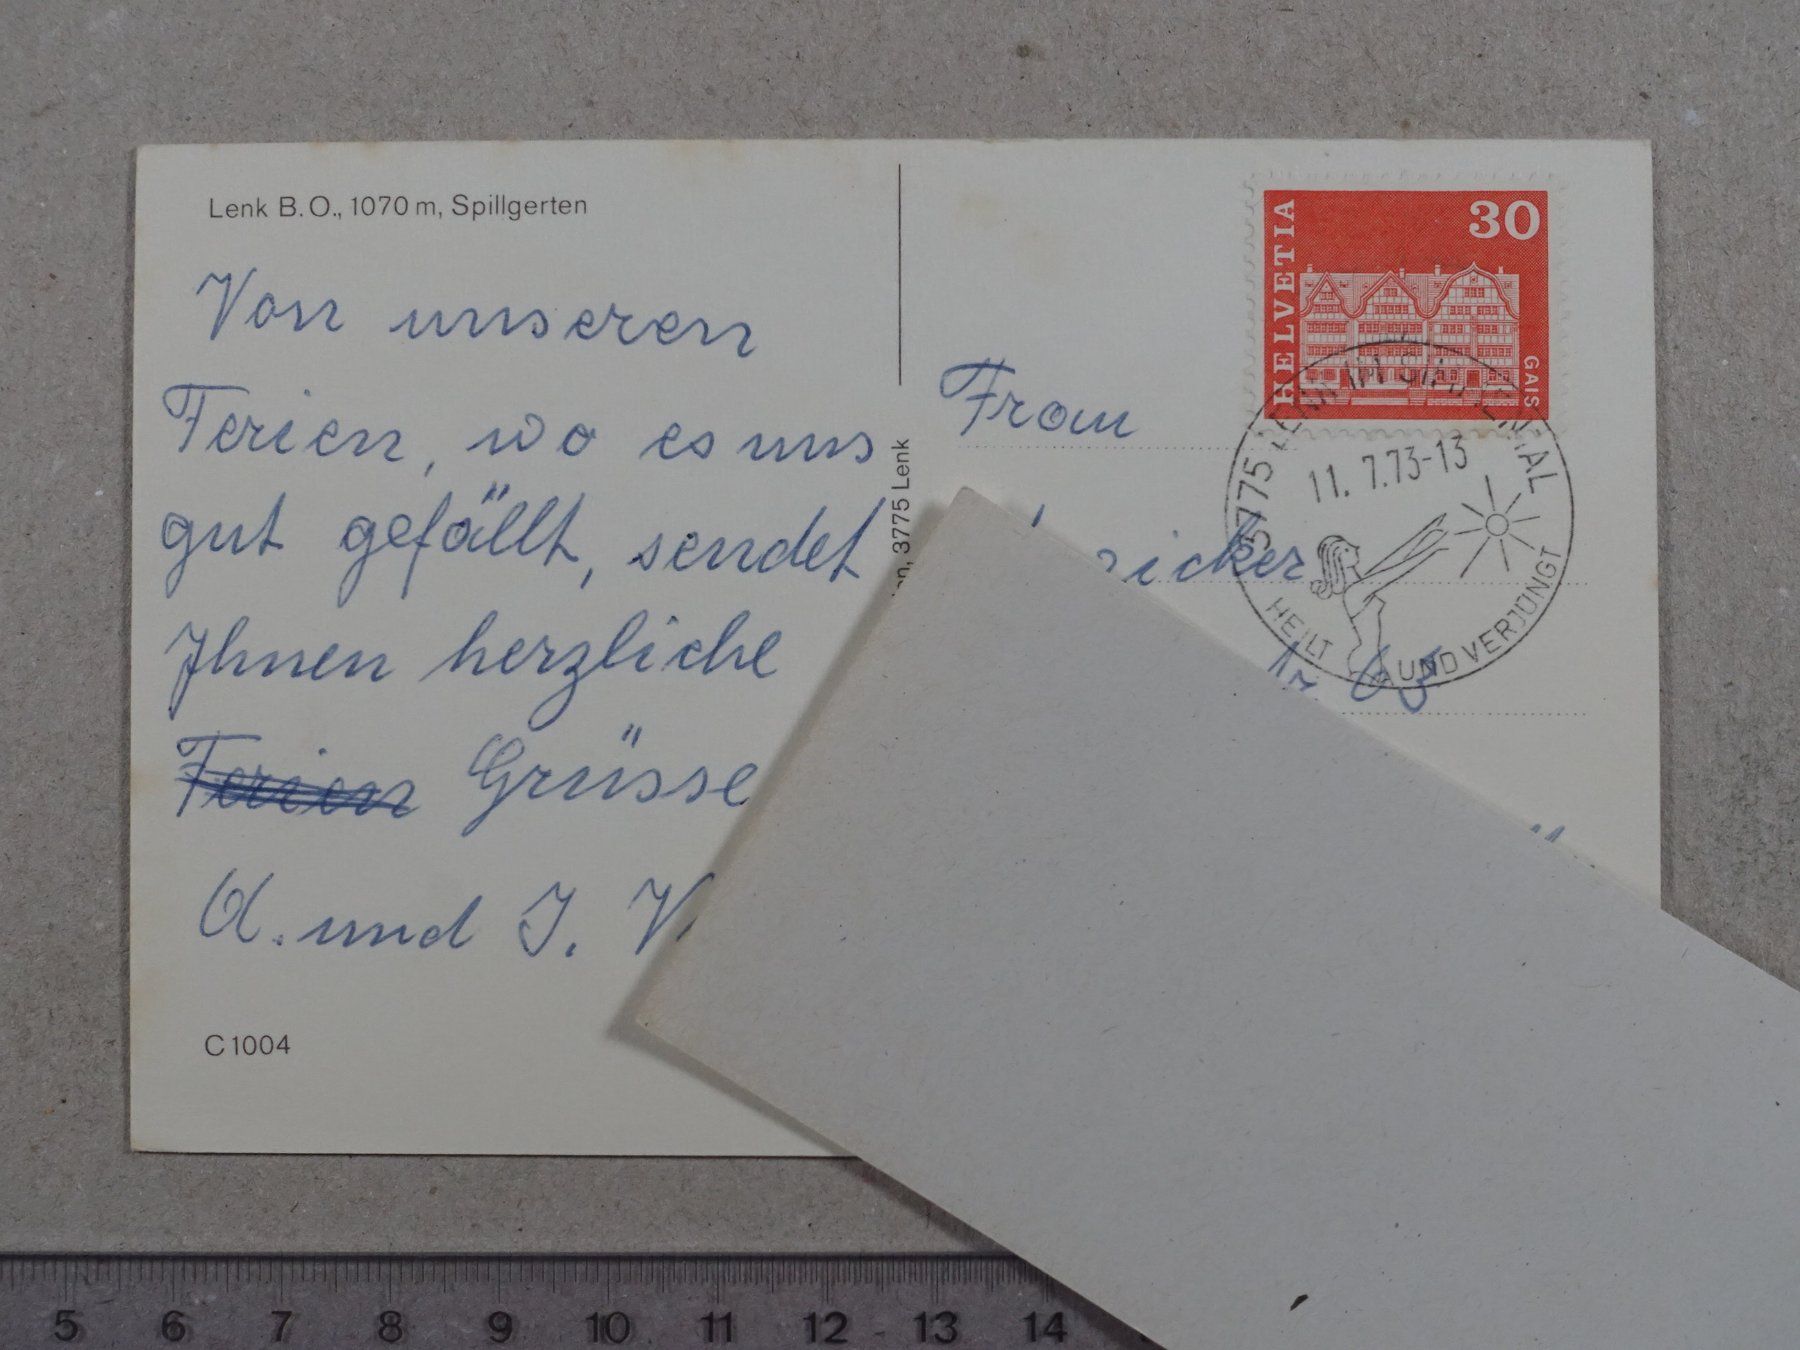 Lenk B.O., 1070 m, Spillgerten
Von unseren
Ferien, wo es uns
gut gefällt, sendet
Ihnen herzliche
Ferien Grüsse
A. und J. V
C 1004
3775 Lenk
HELVETIA
30
GAIS
3775 LENK IM SIMMENTAL
11. 7.73-13
HEILT UND VERJÜNGT
Frau
65
5 6 7 8 9 10 11 12 13 14